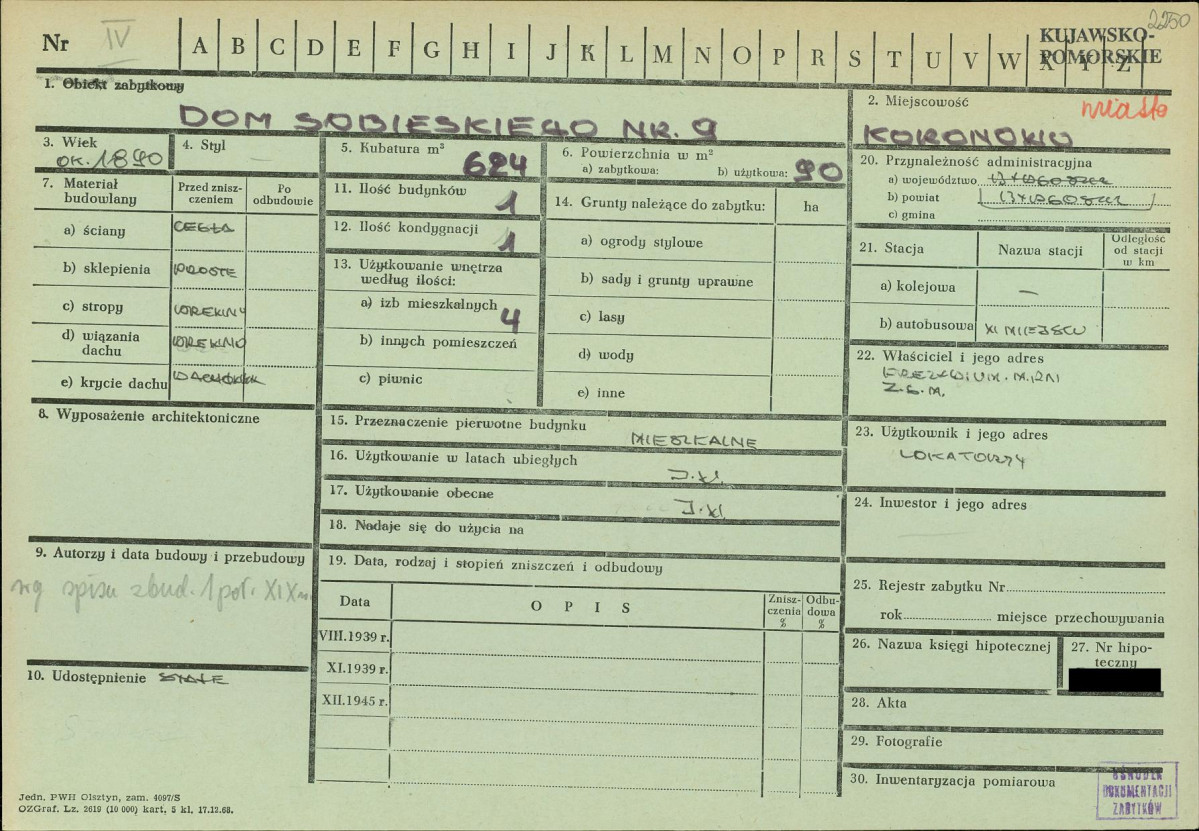 2250
Nr IV A B C D E F G H I J K L M N O P R S T U V W X Y Z
KUJAWSKO-
POMORSKIE
1. Obiekt zabytkowy
DOM SOBIESKIEGO NR. 9
2. Miejscowość miasto
KORONOWO
3. Wiek
OK. 1890
4. Styl —
5. Kubatura m³
624
6. Powierzchnia w m²
a) zabytkowa: b) użytkowa: 90
7. Materiał
budowlany
Przed znisz-
czeniem
Po
odbudowie
a) ściany CEGŁA
b) sklepienia PROSTE
c) stropy DREWNY
d) wiązania
dachu
DREWNO
e) krycie dachu DACHÓWK
8. Wyposażenie architektoniczne
9. Autorzy i data budowy i przebudowy
wg spisu zbud. 1 poł. XIX w.
10. Udostępnienie STAŁE
11. Ilość budynków
1
12. Ilość kondygnacji
1
13. Użytkowanie wnętrza
według ilości:
a) izb mieszkalnych
4
b) innych pomieszczeń
c) piwnic
14. Grunty należące do zabytku: ha
a) ogrody stylowe
b) sady i grunty uprawne
c) lasy
d) wody
e) inne
15. Przeznaczenie pierwotne budynku
MIESZKALNE
16. Użytkowanie w latach ubiegłych
J.W.
17. Użytkowanie obecne
J.W.
18. Nadaje się do użycia na
19. Data, rodzaj i stopień zniszczeń i odbudowy
Data
OPIS
Znisz-
czenia
%
Odbu-
dowa
%
VIII.1939 r.
XI.1939 r.
XII.1945 r.
20. Przynależność administracyjna
a) województwo BYDGOSZCZ
b) powiat BYDGOSZCZ
c) gmina
21. Stacja
Nazwa stacji
Odległość
od stacji
w km
a) kolejowa —
b) autobusowa W MIEJSCU
22. Właściciel i jego adres
PREZYDIUM. M.RN
Z.G.M.
23. Użytkownik i jego adres
LOKATORZY
24. Inwestor i jego adres
25. Rejestr zabytku Nr
rok miejsce przechowywania
26. Nazwa księgi hipotecznej
27. Nr hipo-
teczny
28. Akta
29. Fotografie
30. Inwentaryzacja pomiarowa
OŚRODEK
DOKUMENTACJI
ZABYTKÓW
Jedn. PWH Olsztyn, zam. 4097/S
OZGraf. Lz. 2619 (10 000) kart. 5 kl. 17.12.68.